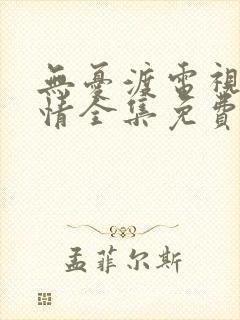 無憂渡電視
情全集免費
孟菲尔斯